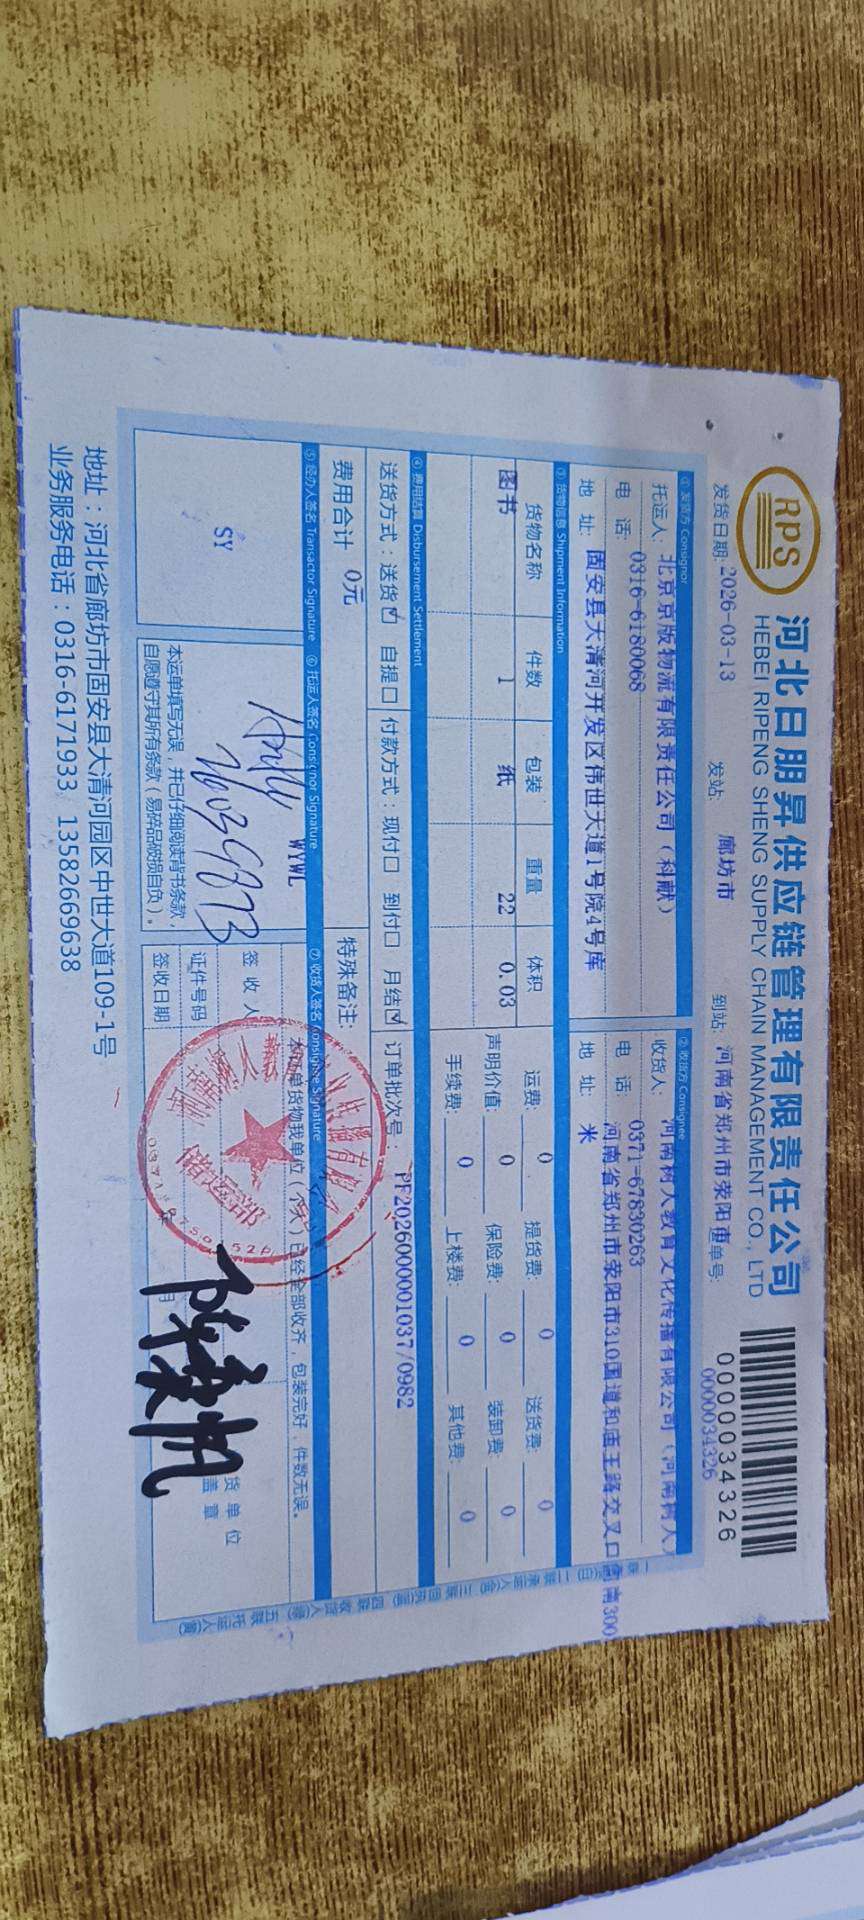 RPS
河北日朋昇供应链管理有限责任公司
HEBEI RIPENG SHENG SUPPLY CHAIN MANAGEMENT CO., LTD
0000034326
发货日期: 2026-03-13 发站: 廊坊市 到站: 河南省郑州市荥阳市 单号: 0000034326
① 发货方 Consignor ② 收货方 Consignee
托运人: 北京京版物流有限责任公司（科献） 收货人: 河南树人教育文化传播有限公司（河南树人
电 话: 0316-6180068 电 话: 0371-67830263
地 址: 固安县大清河开发区伟世大道1号院4号库 地 址: 河南省郑州市荥阳市310国道和庙王路交叉口向南300
米
③ 货物信息 Shipment Information
货物名称 件数 包装 重量 体积 运费: 0 提货费: 0 送货费: 0
图书 1 纸 22 0.03 声明价值: 0 保险费: 0 装卸费: 0
手续费: 0 上楼费: 0 其他费: 0
④ 费用结算 Disbursement Settlement
送货方式：送货☑ 自提☐ 付款方式：现付☐ 到付☐ 月结☑ 订单批次号: PF2026000001037/0982
费用合计 0元 特殊备注:
⑤ 经办人签名 Transactor Signature ⑥ 托运人签名 Consignor Signature ⑦ 收货人签名 Consignee Signature
SY
WYWL
本运单货物我单位（个人）已经全部收齐，包装完好，件数无误。
签 收 人
证件号码
签收日期
月
货单位
盖 章
储运部
本运单填写无误，并已仔细阅读背书条款，
自愿遵守其所有条款（易碎品破损自负）。
地址：河北省廊坊市固安县大清河园区中世大道109-1号
业务服务电话：0316-6171933 13582669638